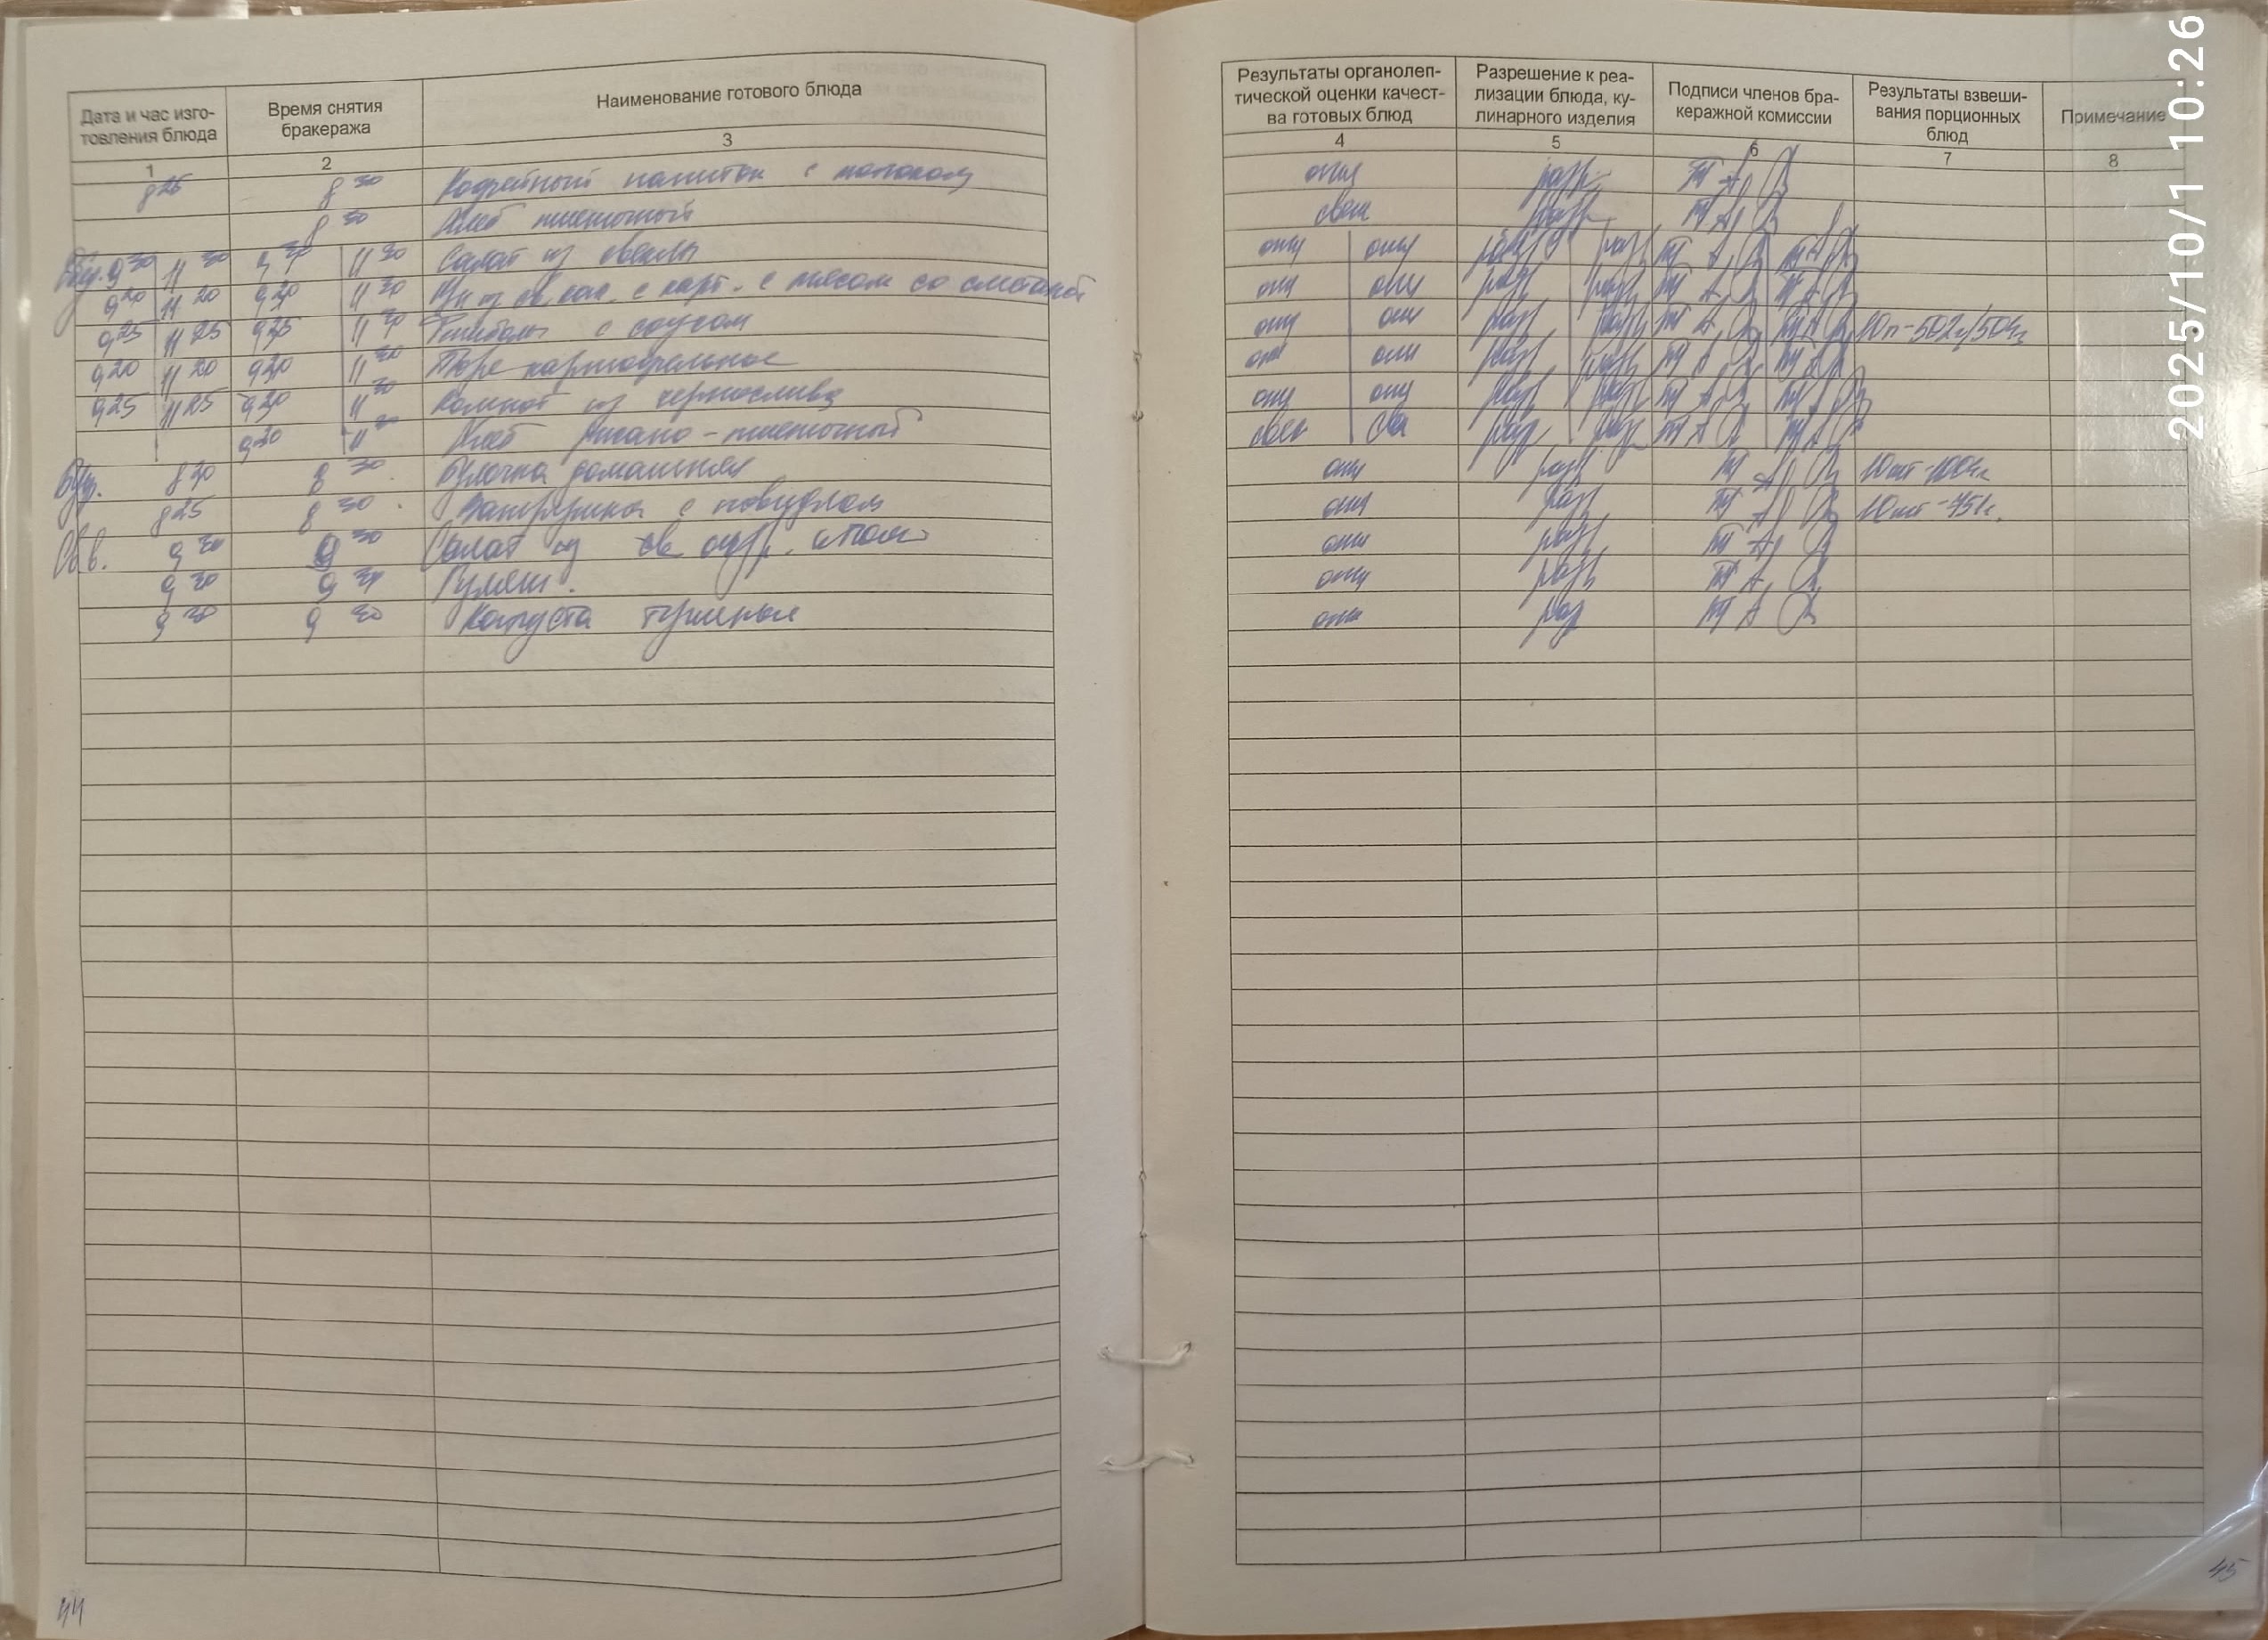 Дата и час изго-
товления блюда
Время снятия
бракеража
Наименование готового блюда
1 2 3
8 25 8 30 Кофейный напиток с молоком
8 30 Хлеб пшеничный
Обед. 9 30 11 30 9 30 11 30 Салат из свеклы
9 20 11 20 9 30 11 30 Щи из св. кап. с карт. с мясом со сметаной
9 25 11 25 9 25 11 30 с соусом
9 20 11 20 9 30 11 30 Пюре картофельное
9 25 11 25 9 30 11 30 Компот из чернослива
9 30 11 30 Хлеб ржано-пшеничный
Буф. 8 20 8 30 Булочка домашняя
8 25 8 30 Ватрушка с повидлом
9 20 9 30 Салат из св огур.
9 20 9 30 Гуляш.
9 20 9 30 Капуста тушеная
44
Результаты органолеп-
тической оценки качест-
ва готовых блюд
Разрешение к реа-
лизации блюда, ку-
линарного изделия
Подписи членов бра-
керажной комиссии
Результаты взвеши-
вания порционных
блюд
Примечание
4 5 6 7 8
отл разр
свеж разр
отл отл разр разр
отл отл разр разр
отл отл разр разр 10п-502г/504г
отл отл разр разр
отл отл разр разр
свеж све разр разр
отл разр 10шт-1004г
отл разр 10шт-751г.
отл разр
отл разр
отл разр
45
2025/10/1 10:26